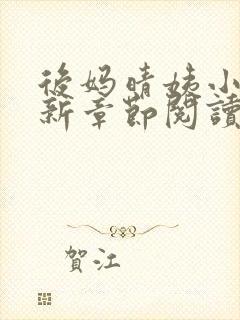 後妈晴姨小
新章節閱讀
賀江